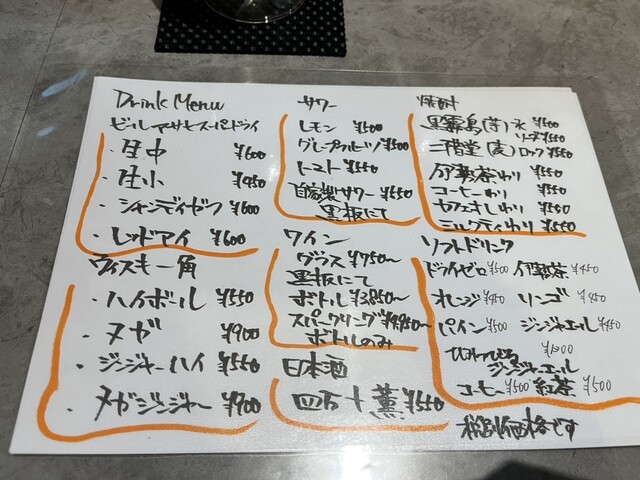 Drink Menu
ビール アサヒスーパードライ
・生中 ¥600
・生小 ¥450
・シャンディガフ ¥600
・レッドアイ ¥600
ウィスキー 角
・ハイボール ¥550
・メガ ¥900
・ジンジャーハイ ¥550
・メガジンジャー ¥900
サワー
レモン ¥500
グレープフルーツ ¥500
トマト ¥550
自家製サワー ¥550
黒板にて
ワイン
グラス ¥750〜
黒板にて
ボトル ¥3,850〜
スパークリング ¥4,950〜
ボトルのみ
日本酒
四万十 薫 ¥550
焼酎
黒霧島(芋) 水 ¥500
ソーダ ¥550
二階堂(麦) ロック ¥550
伊勢茶わり ¥550
コーヒーわり ¥550
カフェオレわり ¥550
ミルクティわり ¥550
ソフトドリンク
ドライゼロ ¥500 伊勢茶 ¥450
オレンジ ¥450 リンゴ ¥450
パイン ¥500 ジンジャエール ¥450
¥1000
ジンジャエール
コーヒー ¥500 紅茶 ¥500
税別価格です